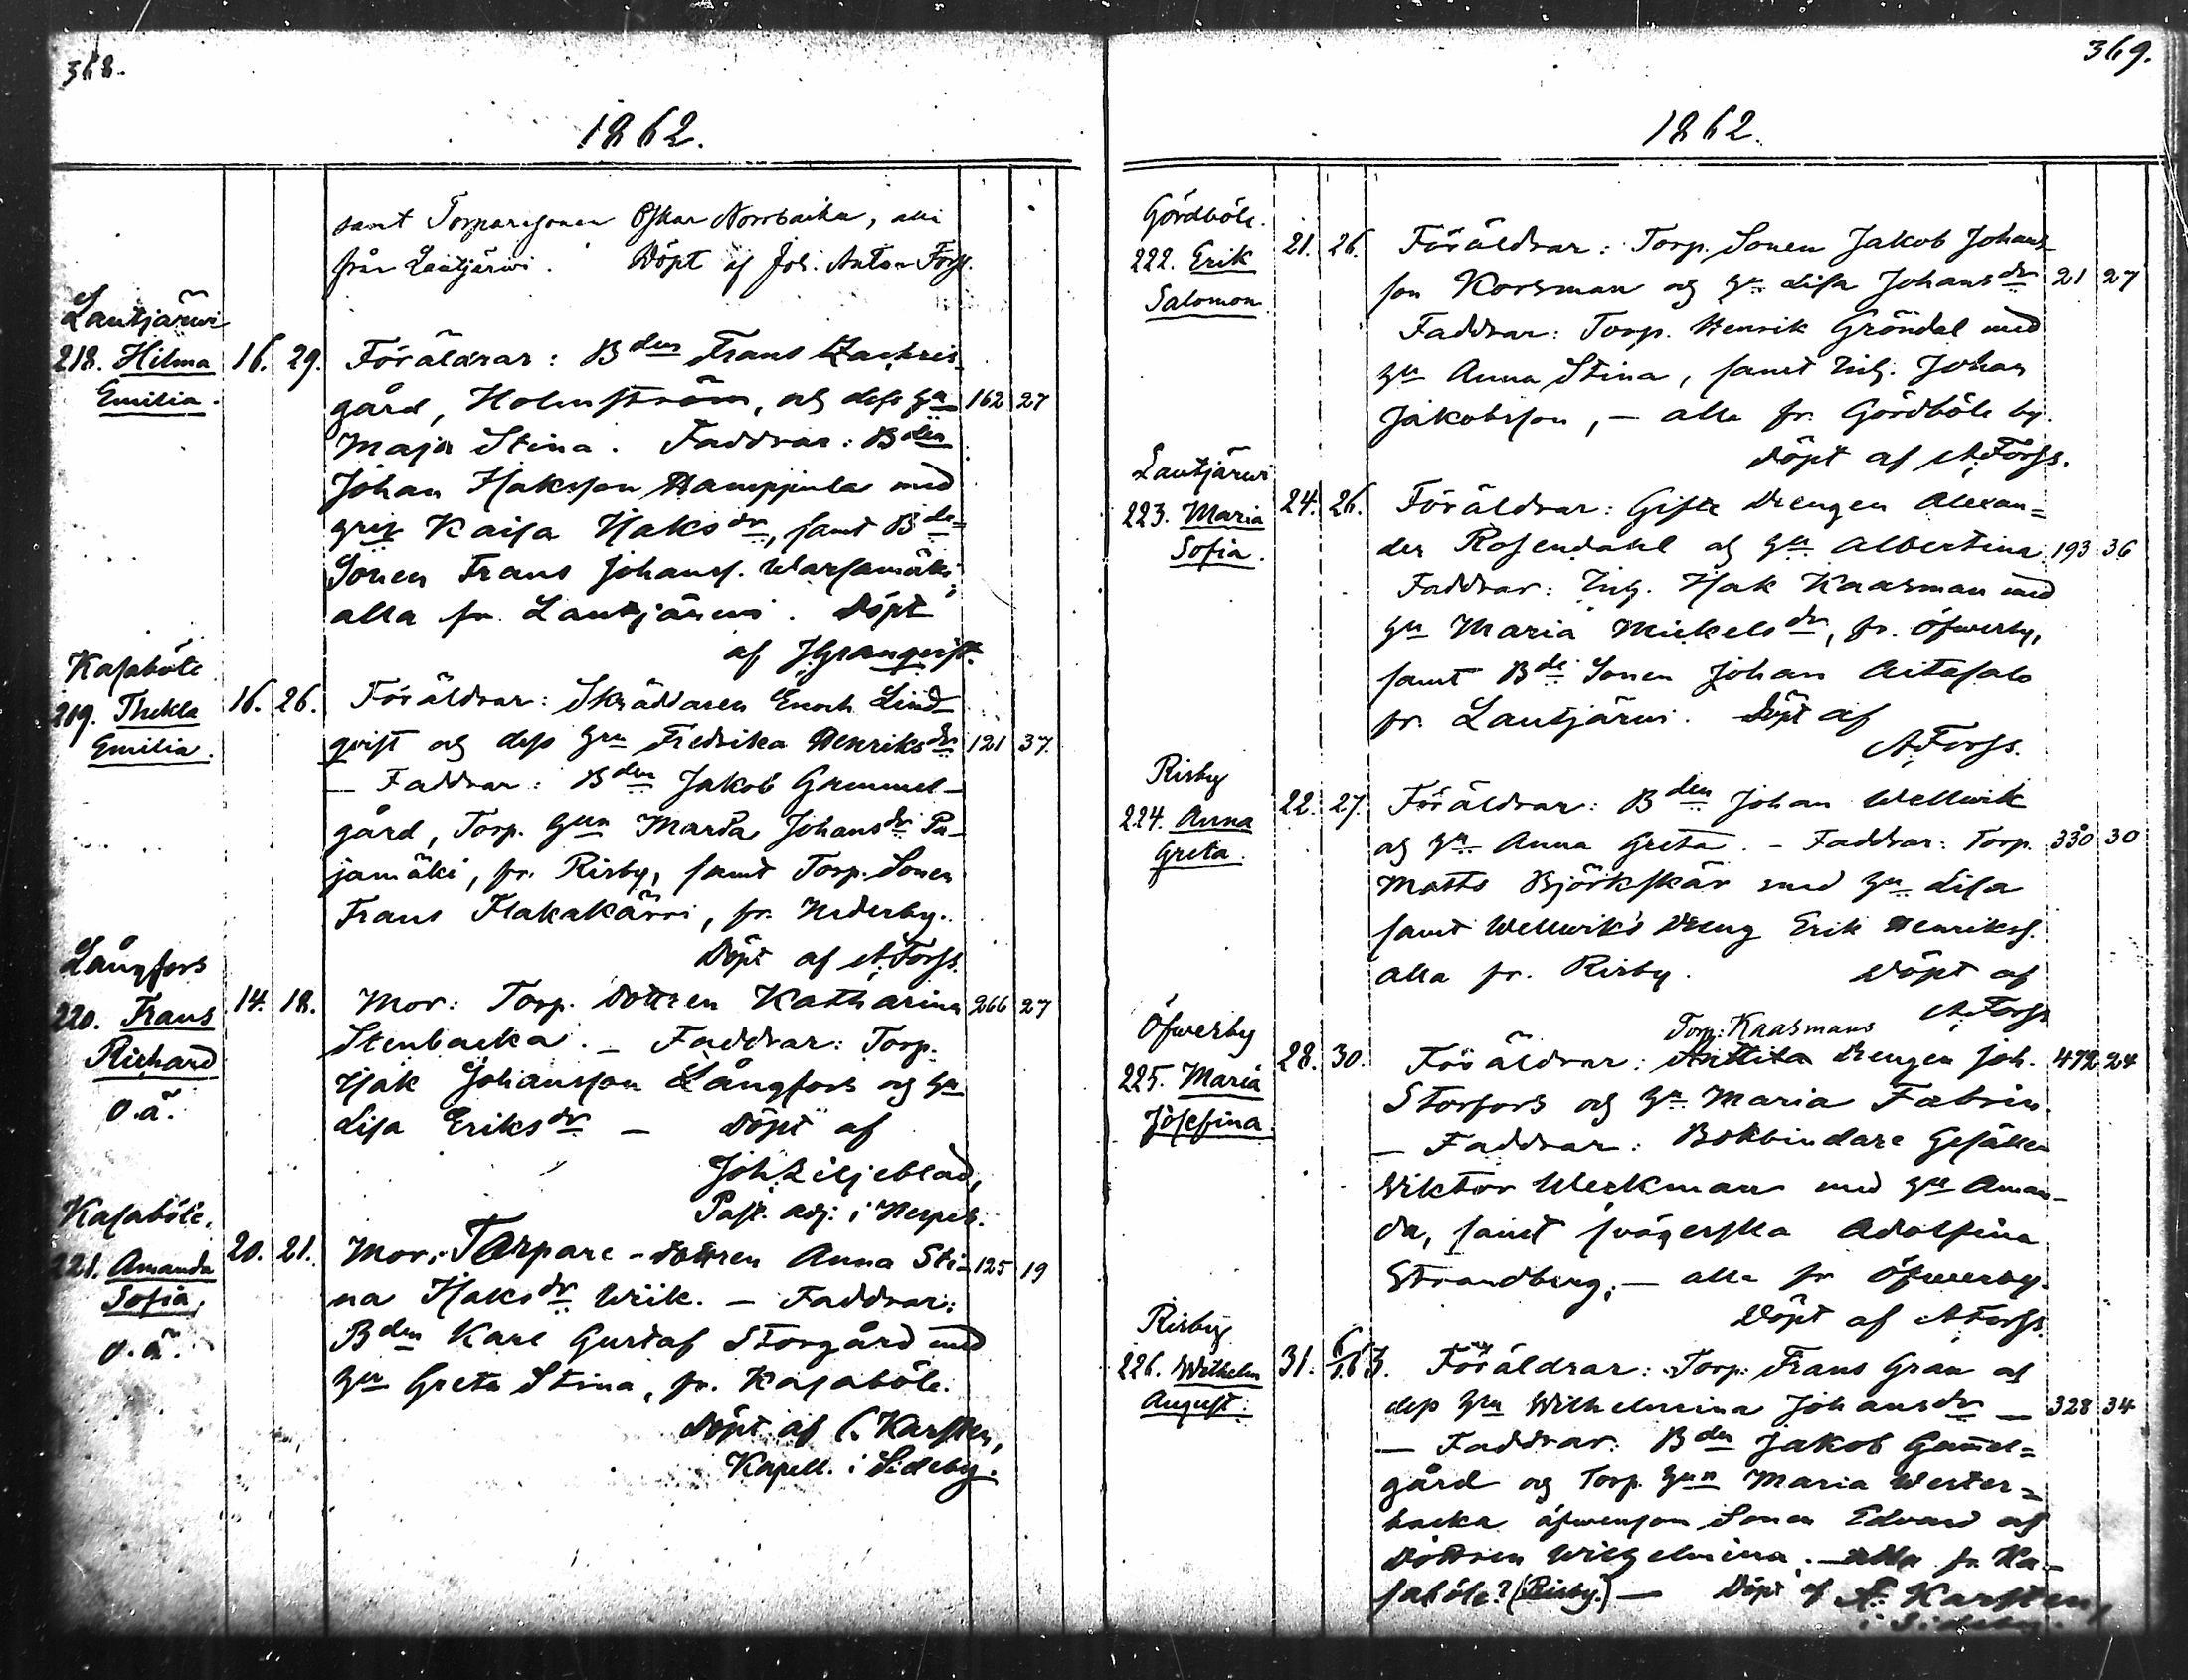 368.
1862.
samt Torparesonen Oskar Norrbacka, alla
från Lautjärwi. Döpt af Joh. Anton Forss.
Lautjärwi
218. Hilma
Emilia.
16. 29.
Föräldrar: Bden Frans Zachris-
gård, Holmström, och dess hu 162 27
Maja Stina. Faddrar: Bden
Johan Isaksson Hampjula med
Kaisa Isaksdr, samt Bde-
Sonen Frans Johanss. Warsamäki,
alla fr. Lautjärwi. Döpt
af JGranqvist.
Kasaböle
219. Thekla
Emilia.
16. 26.
Föräldrar: Skräddaren Enoch Lind-
qvist och dess hru Fredrika Henriksdr 121 37.
— Faddrar: Bden Jakob Gammel-
gård, Torp. hun Maria Johansdr Pa-
jamäki, fr. Risby, samt Torp. Sonen
Frans Flakakärri, fr. Yrderby.
Döpt af AForss.
Långfors
220. Frans
Richard
o.ä.
14. 18.
Mor: Torp. Dottren Katharina 266 27
Stenbacka. — Faddrar: Torp.
Isak Johansson Långfors och hu
Lisa Eriksdr — Döpt af
Joh Liljeblad,
Past. adj. i Nerpes.
Kasaböle.
221. Amanda
Sofia,
o.ä.
20. 21.
Mor: Torpare-dottren Anna Sti- 125 19
na Isaksdr Wiik. — Faddrar:
Bden Karl Gustaf Storgård med
hu Greta Stina, fr. Kasaböle.
Döpt af C. Karsten,
Kapell. i Sideby.
369.
1862.
Gördböle.
222. Erik
Salomon
21. 26.
Föräldrar: Torp. Sonen Jakob Johans-
son Korsman och hu Lisa Johansdr 21 27
Faddrar: Torp. Henrik Gröndal med
hu Anna Stina, samt Ynlg. Johan
Jakobsson, — alla fr. Gördböle by.
Döpt af AForss.
Lautjärwi
223. Maria
Sofia.
24. 26.
Föräldrar: Gifte Drengen Alexan=
der Rosendahl och hu Albertina 193 36
Faddrar: Isak Kaasman med
hu Maria Mickelsdr, fr. Öfwerby,
samt Bde Sonen Johan Aitasalo
fr. Lautjärwi. Döpt af
AForss.
Risby
224. Anna
Greta.
22. 27.
Föräldrar: Bden Johan Wellwik
och hu Anna Greta. — Faddrar: Torp. 330 30
Matts Björkskär med hu Lisa
samt Wellwiks Dreng Erik Henrikss.
alla fr. Risby. Döpt af
AForss
Öfwerby
225. Maria
Josefina.
28. 30.
Torp: Kaasmans
Föräldrar: Anttila Drengen Joh. 472 24
Storfors och hu Maria Fabrin.
— Faddrar: Bokbindare Gesällen
Wiktor Werkman med hu Aman-
da, samt svägerska Adolfina
Strandberg, — alla fr Öfwerby.
Döpt af AForss.
Risby
226. Wilhelm
August.
31. 6/1 63.
Föräldrar: Torp: Frans Gran och
dess hru Wilhelmina Johansdr — 328 34
— Faddrar: Bden Jakob Gam̄el=
gård och Torp. hun Maria Wester=
backa äfwensom Sonen Edvard och
Dottren Wilhelmina. — alla fr. Ka-
saböle? (Risby.) — Döpt af Karsten,
i Sideby.